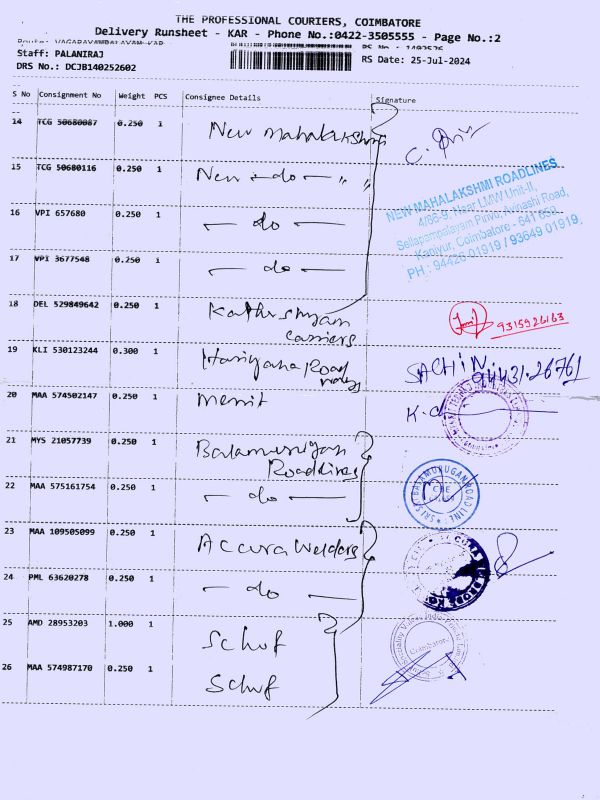 THE PROFESSIONAL COURIERS, COIMBATORE
Delivery Runsheet - KAR - Phone No.:0422-3505555 - Page No.:2
Staff: PALANIRAJ
DRS No.: DCJB140252602
RS Date: 25-Jul-2024
S No Consignment No Weight PCS Consignee Details Signature
14 TCG 50680087 0.250 1 New mahalakshmi
15 TCG 50680116 0.250 1 New - do - " "
NEW MAHALAKSHMI ROADLINES
4/86-9, Near LMW Unit-II,
Sellapampalayam Pirivo, Avinashi Road,
Kaniyur, Coimbatore - 641 659.
PH : 94426 01919 / 93649 01919
16 VPI 657680 0.250 1 - do -
17 VPI 3677548 0.250 1 - do -
18 DEL 529849642 0.250 1 Kathushyam
carriers
9315926163
19 KLI 530123244 0.300 1 Hariyana Road
SACHIN.
94431.26761
20 MAA 574502147 0.250 1 merit
21 MYS 21057739 0.250 1 Balamurugan
Roadlines
22 MAA 575161754 0.250 1 - do -
SRI SRI BALAMURUGAN ROAD LINE
CBE
23 MAA 109505099 0.250 1 Accura Welders
24 PML 63620278 0.250 1 - do -
25 AMD 28953203 1.000 1 Schuf
Coimbatore
26 MAA 574987170 0.250 1 Schuf